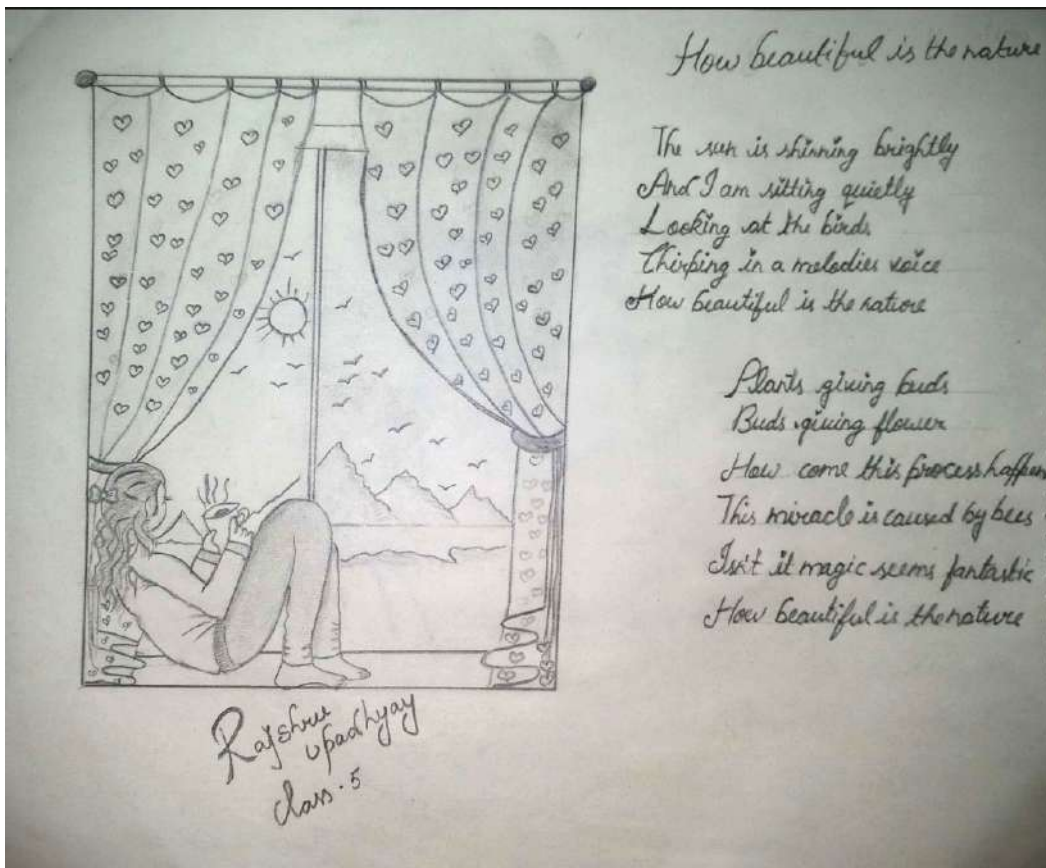 How beautiful is the nature
The sun is shinning brightly
And I am sitting quietly
Looking at the birds
Chirping in a melodies voice
How beautiful is the nature
Plants giving buds
Buds giving flower
How come this process happen
This miracle is caused by bees
Isn't it magic seems fantastic
How beautiful is the nature
Rajshree
upadhyay
class.5